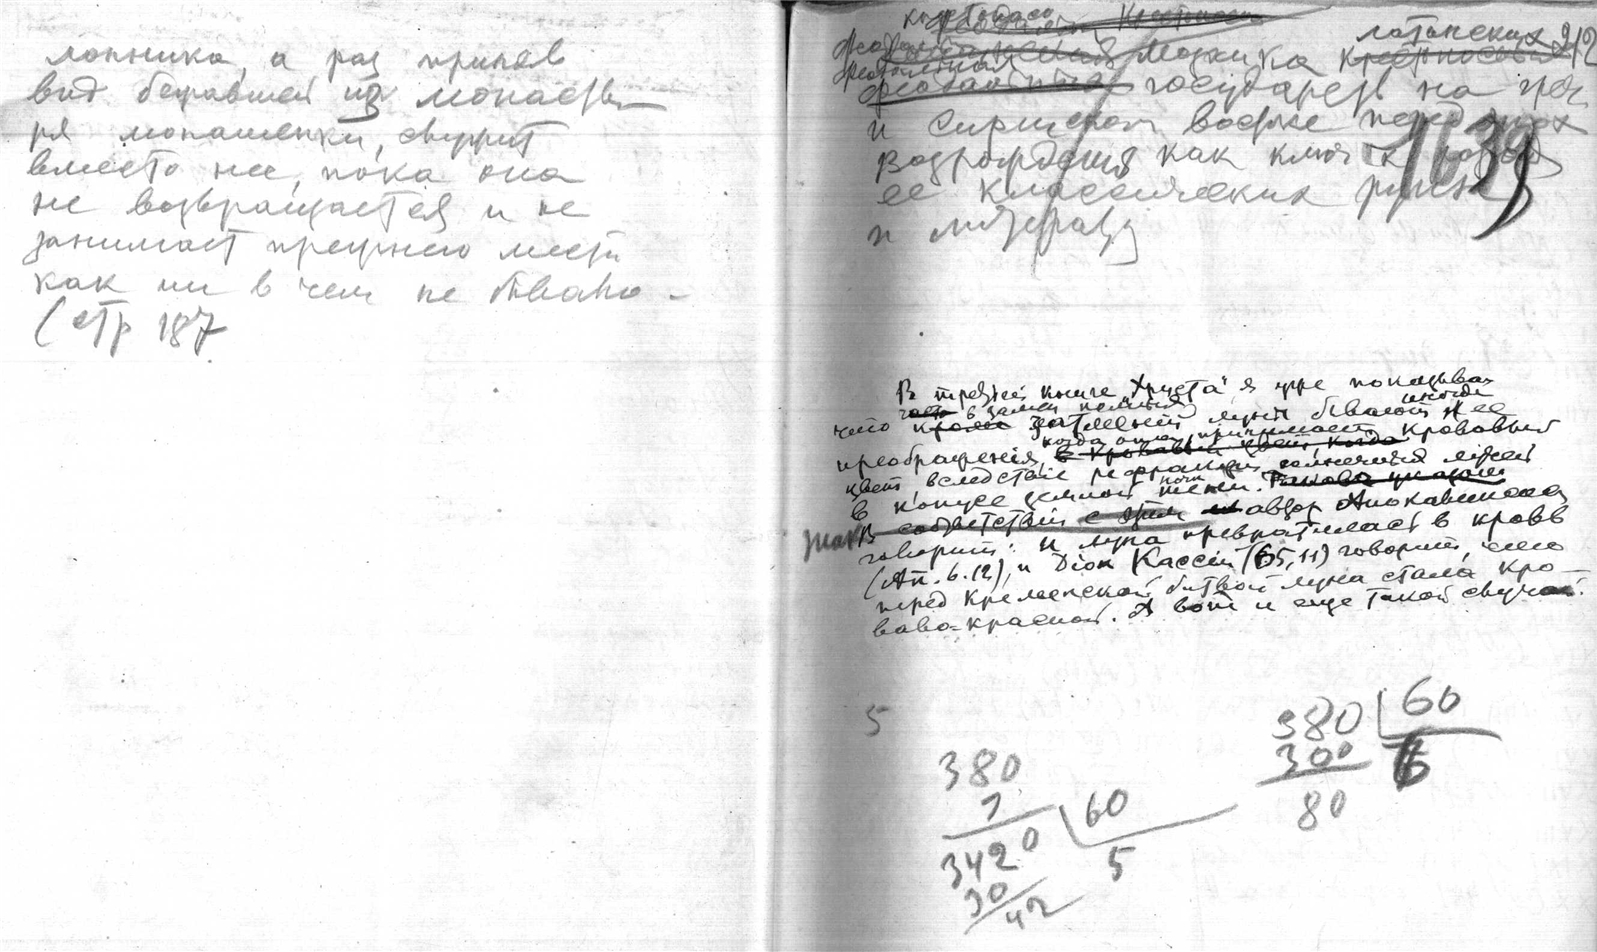 лопника, а раз приняв
вид бежавшей из монасты-
ря монашенки, служит
вместо нее, пока она
не возвращается и не
занимает прежнего места
как ни в чем не бывало -
(стр 187
латинских 212
мозаика
государств на греч
и сирийском востоке перед эпох
Возрождения как ключ к
ее классических руин
и литерату
1639
В третьей книге „Христа" я уже показывал
что в замен полных затмений луны бывают иногда и ее
преображения когда она принимает кровавый
цвет вследствие рефракции солнечных лучей
в конусе земной тени.
В соответствии с этим автор Апокалипсиса
говорит: и луна превратилась в кровь
(Ап. 6.12), и Дион Кассий (65,11) говорит, что
перед Кремонской битвой луна стала кро-
ваво-красной. А вот и еще такой случай:
5
380 60
300 6
80
380
9
3420 60
30 5
42